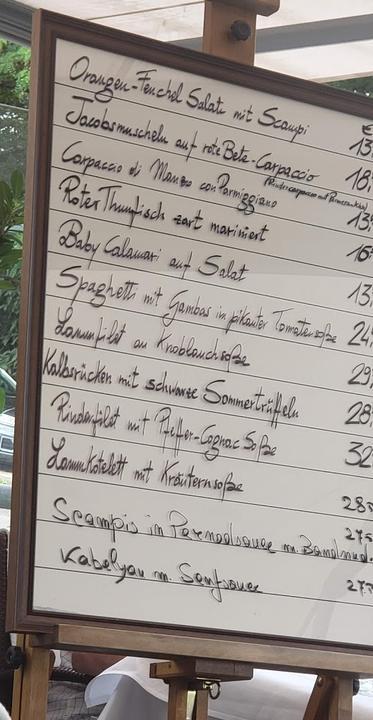 Orangen-Fenchel Salat mit Scampi 13,
Jacobsmuscheln auf rote Bete-Carpaccio 18,
Carpaccio di Manzo con Parmiggiano (Rindercarpaccio mit Parmesankäse) 13,
Roter Thunfisch zart mariniert 16,
Baby Calamari auf Salat 13,
Spaghetti mit Gambas in pikanter Tomatensoße 24,
Lammfilet an Knoblauchsoße 29,
Kalbsrücken mit schwarze Sommertrüffeln 28,
Rinderfilet mit Pfeffer-Cognac Soße 32
Lammkotelett mit Kräutersoße 28,
Scampis in Pernodsauce m. Bandnud. 27,
Kabelyau m. Senfsauce 27,